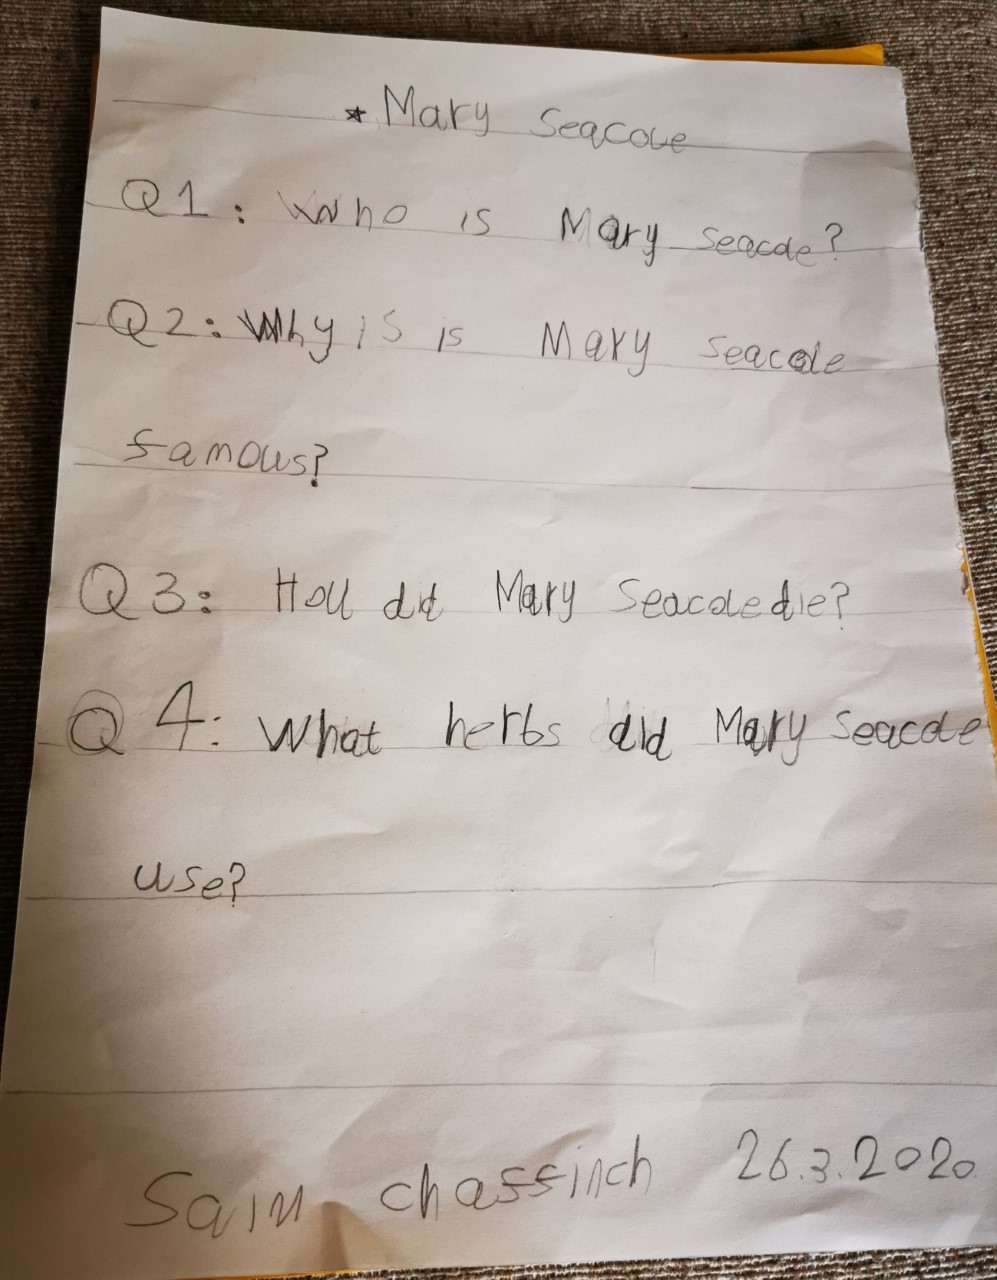 * Mary Seacole
Q1: Who is Mary Seacole?
Q2: Why is is Mary Seacole
famous?
Q3: How did Mary Seacole die?
Q4: What herbs did Mary Seacole
use?
26.3.2020